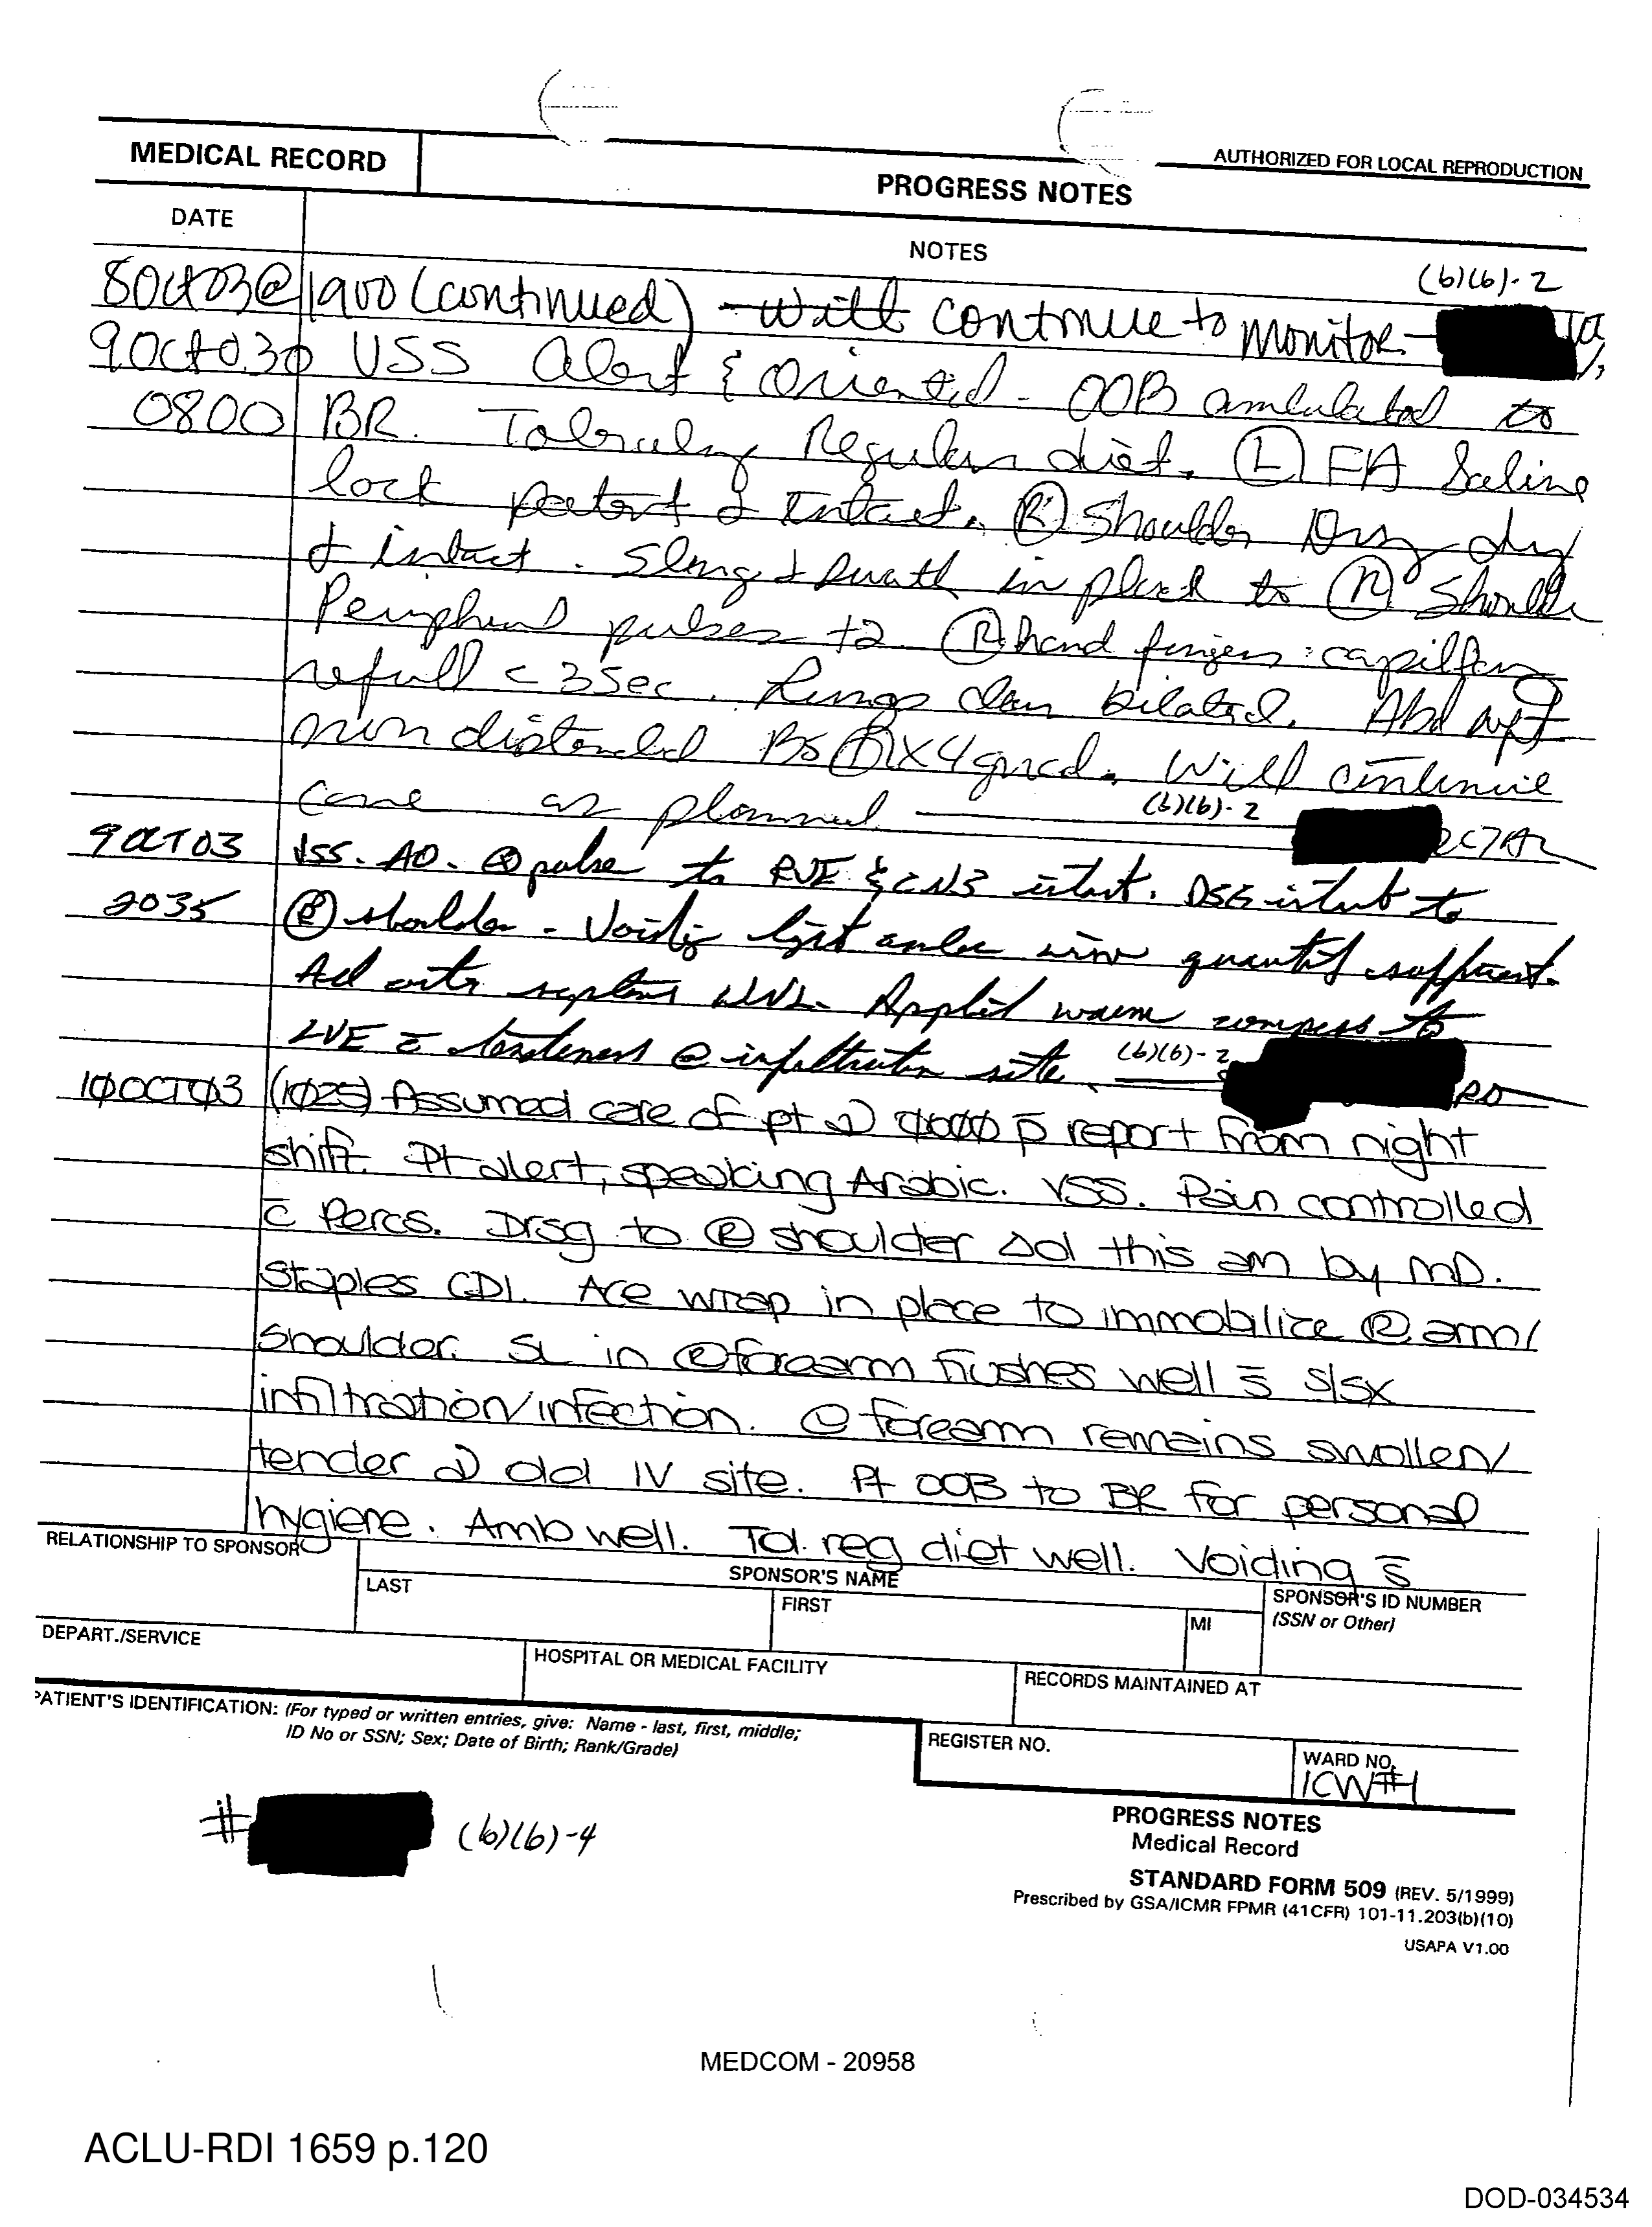 AUTHORIZED FOR LOCAL REPRODUCTION
MEDICAL RECORD
PROGRESS NOTES
DATE
NOTES
(b)(6)-2
8Oct03@1900 (continued) Will continue to monitor
9Oct03 VSS alert & oriented - OOB ambulated to
0800 BR. Regular diet. (L) FA Saline
lock patent & intact. (R) Shoulder Drsg dry
& intact. Sling & Swath in place to (R) Shoulder
Peripheral pulses +2 (R) hand fingers: capillary
refill < 3 Sec. Lungs clear bilateral. Abd
non distended BS x4 quad. Will continue
care as planned
(b)(6)-2
9OCT03 VSS. AO. pulse to RUE & intact. DSG intact to
2035 (R) shoulder - Voiding light amber urine quantity sufficient.
WNL. Applied warm compress to
LUE c̄ tenderness @ infiltration site.
(b)(6)-2
10OCT03 (1025) Assumed care of pt p̄ report from night
shift. Pt alert, speaking Arabic. VSS. Pain controlled
c̄ Percs. Drsg to (R) shoulder Δd this am by MD.
Staples CDI. Ace wrap in place to immobilize (R) arm/
Shoulder. SL in forearm flushes well s̄ s/sx
infiltration/infection. forearm remains swollen/
tender old IV site. Pt OOB to BR for personal
hygiene. Amb well. Tol. reg diet well. Voiding s̄
RELATIONSHIP TO SPONSOR
SPONSOR'S NAME
LAST
FIRST
MI
SPONSOR'S ID NUMBER
(SSN or Other)
DEPART./SERVICE
HOSPITAL OR MEDICAL FACILITY
RECORDS MAINTAINED AT
PATIENT'S IDENTIFICATION: (For typed or written entries, give: Name - last, first, middle;
ID No or SSN; Sex; Date of Birth; Rank/Grade)
REGISTER NO.
WARD NO.
ICW#1
# (b)(6)-4
PROGRESS NOTES
Medical Record
STANDARD FORM 509 (REV. 5/1999)
Prescribed by GSA/ICMR FPMR (41CFR) 101-11.203(b)(10)
USAPA V1.00
MEDCOM - 20958
ACLU-RDI 1659 p.120
DOD-034534